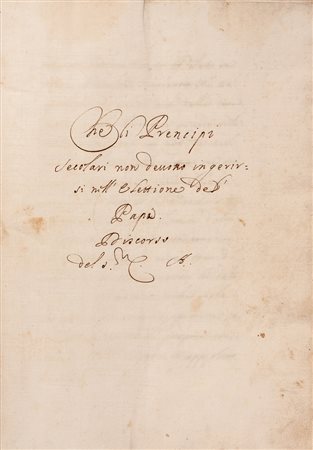 Che li Prencipi
Secolari non deuono ingerir=
si nell' Elettione del
Papa.
Discorso
del s.r C. A.